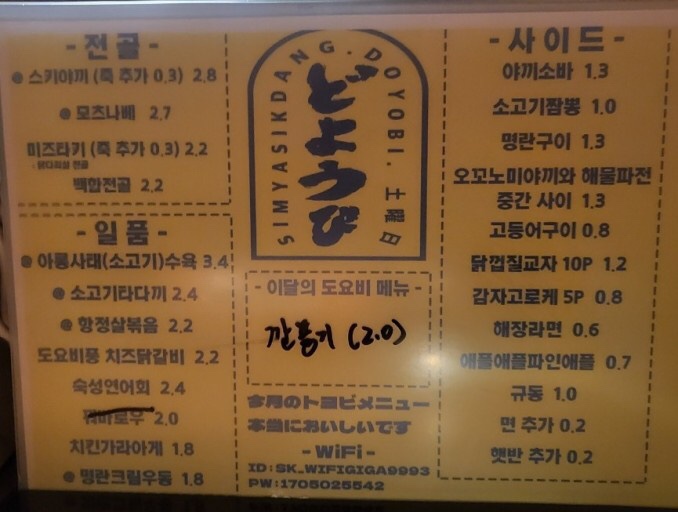 - 전골 -
스키야끼 (죽 추가 0.3) 2.8
모츠나베 2.7
미즈타키 (죽 추가 0.3) 2.2
닭다리살 전골
백합전골 2.2
- 일품 -
아롱사태(소고기)수육 3.4
소고기타다끼 2.4
항정살볶음 2.2
도요비풍 치즈닭갈비 2.2
숙성연어회 2.4
꿔바로우 2.0
치킨가라아게 1.8
명란크림우동 1.8
SIMYASIKDANG.DOYOBI. 土曜日
どようび
- 이달의 도요비 메뉴 -
깐풍기 (2.0)
今月のトヨビメニュー
本当においしいです
- WiFi -
ID:SK_WIFIGIGA9993
PW:1705025542
- 사이드 -
야끼소바 1.3
소고기짬뽕 1.0
명란구이 1.3
오꼬노미야끼와 해물파전
중간 사이 1.3
고등어구이 0.8
닭껍질교자 10P 1.2
감자고로케 5P 0.8
해장라면 0.6
애플애플파인애플 0.7
규동 1.0
면 추가 0.2
햇반 추가 0.2